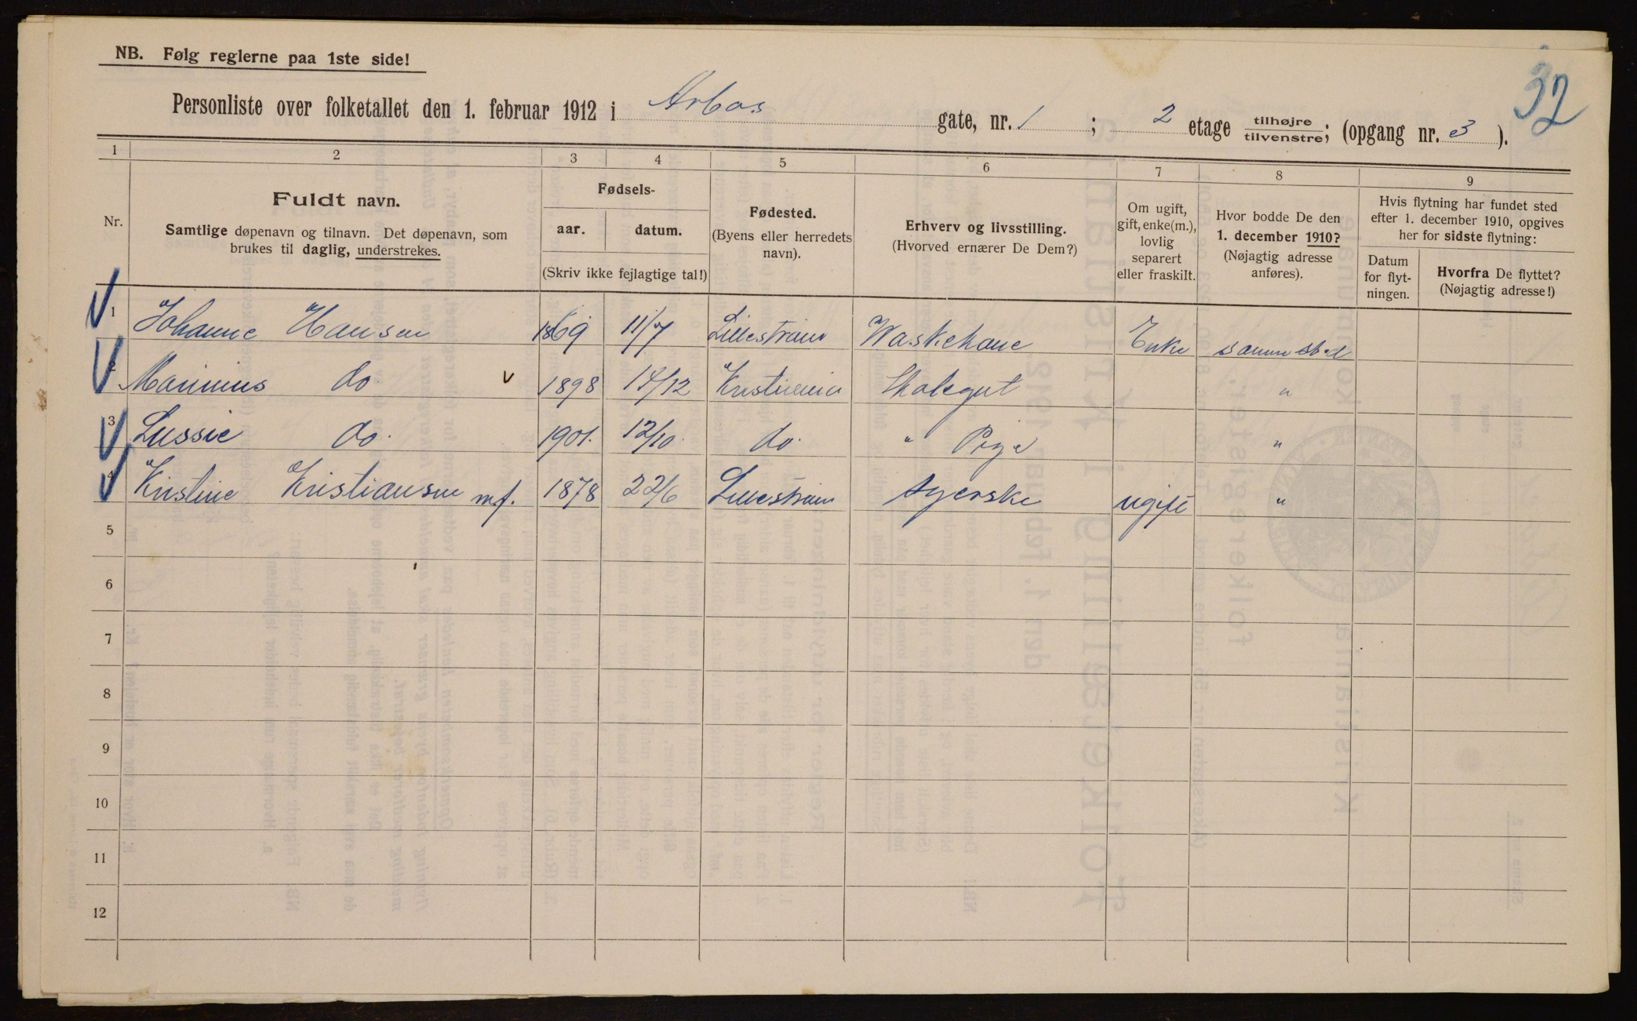 NB. Følg reglerne paa 1ste side!
32
Personliste over folketallet den 1. februar 1912 i Arbos gate, nr. 1 ; 2 etage tilhøjre/tilvenstre; (opgang nr. 3 ).
1 2 3 4 5 6 7 8 9
Nr.
Fuldt navn.
Samtlige døpenavn og tilnavn. Det døpenavn, som
brukes til daglig, understrekes.
Fødsels-
aar. datum.
(Skriv ikke fejlagtige tal!)
Fødested.
(Byens eller herredets
navn).
Erhverv og livsstilling.
(Hvorved ernærer De Dem?)
Om ugift,
gift, enke(m.),
lovlig
separert
eller fraskilt.
Hvor bodde De den
1. december 1910?
(Nøjagtig adresse
anføres).
Hvis flytning har fundet sted
efter 1. december 1910, opgives
her for sidste flytning:
Datum
for flyt-
ningen.
Hvorfra De flyttet?
(Nøjagtig adresse!)
1 Johanne Hansen 1869 11/7 Lillestrøm Waskekone Enke samme sted
Marinius do. v 1898 14/12 Kristiania Skolegut "
3 Lussie do. 1901. 12/10 do. " Pige "
Kristine Kristiansen m.f. 1878 22/6 Lillestrøm Syerske ugift "
5
6
7
8
9
10
11
12